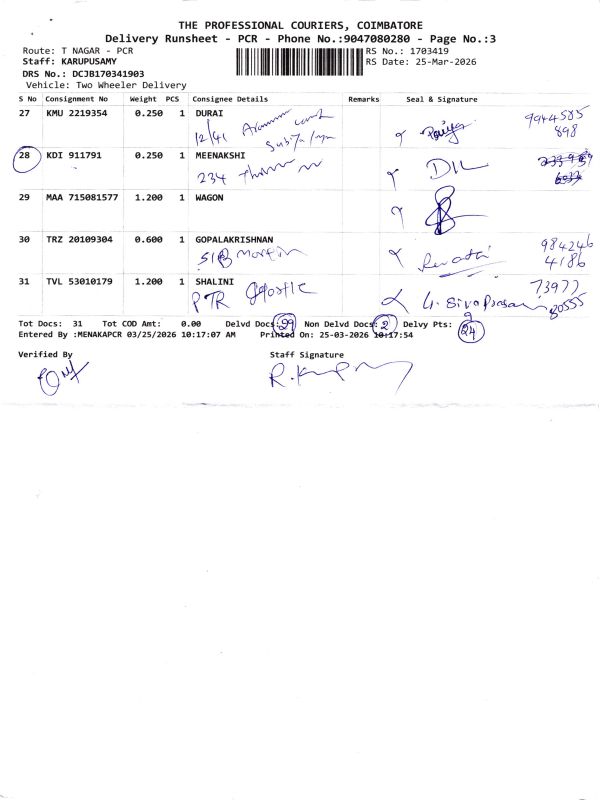 THE PROFESSIONAL COURIERS, COIMBATORE
Delivery Runsheet - PCR - Phone No.:9047080280 - Page No.:3
Route: T NAGAR - PCR
RS No.: 1703419
Staff: KARUPUSAMY
RS Date: 25-Mar-2026
DRS No.: DCJB170341903
Vehicle: Two Wheeler Delivery
S No Consignment No Weight PCS Consignee Details Remarks Seal & Signature
27 KMU 2219354 0.250 1 DURAI
12/41
9944585
898
28 KDI 911791 0.250 1 MEENAKSHI
234
DIL
29 MAA 715081577 1.200 1 WAGON
30 TRZ 20109304 0.600 1 GOPALAKRISHNAN
984246
4186
Revathi
31 TVL 53010179 1.200 1 SHALINI
PTR
73977
80555
Tot Docs: 31 Tot COD Amt: 0.00 Delvd Docs: 29 Non Delvd Docs: 2 Delvy Pts: 24
Entered By :MENAKAPCR 03/25/2026 10:17:07 AM Printed On: 25-03-2026 10:17:54
Verified By Staff Signature